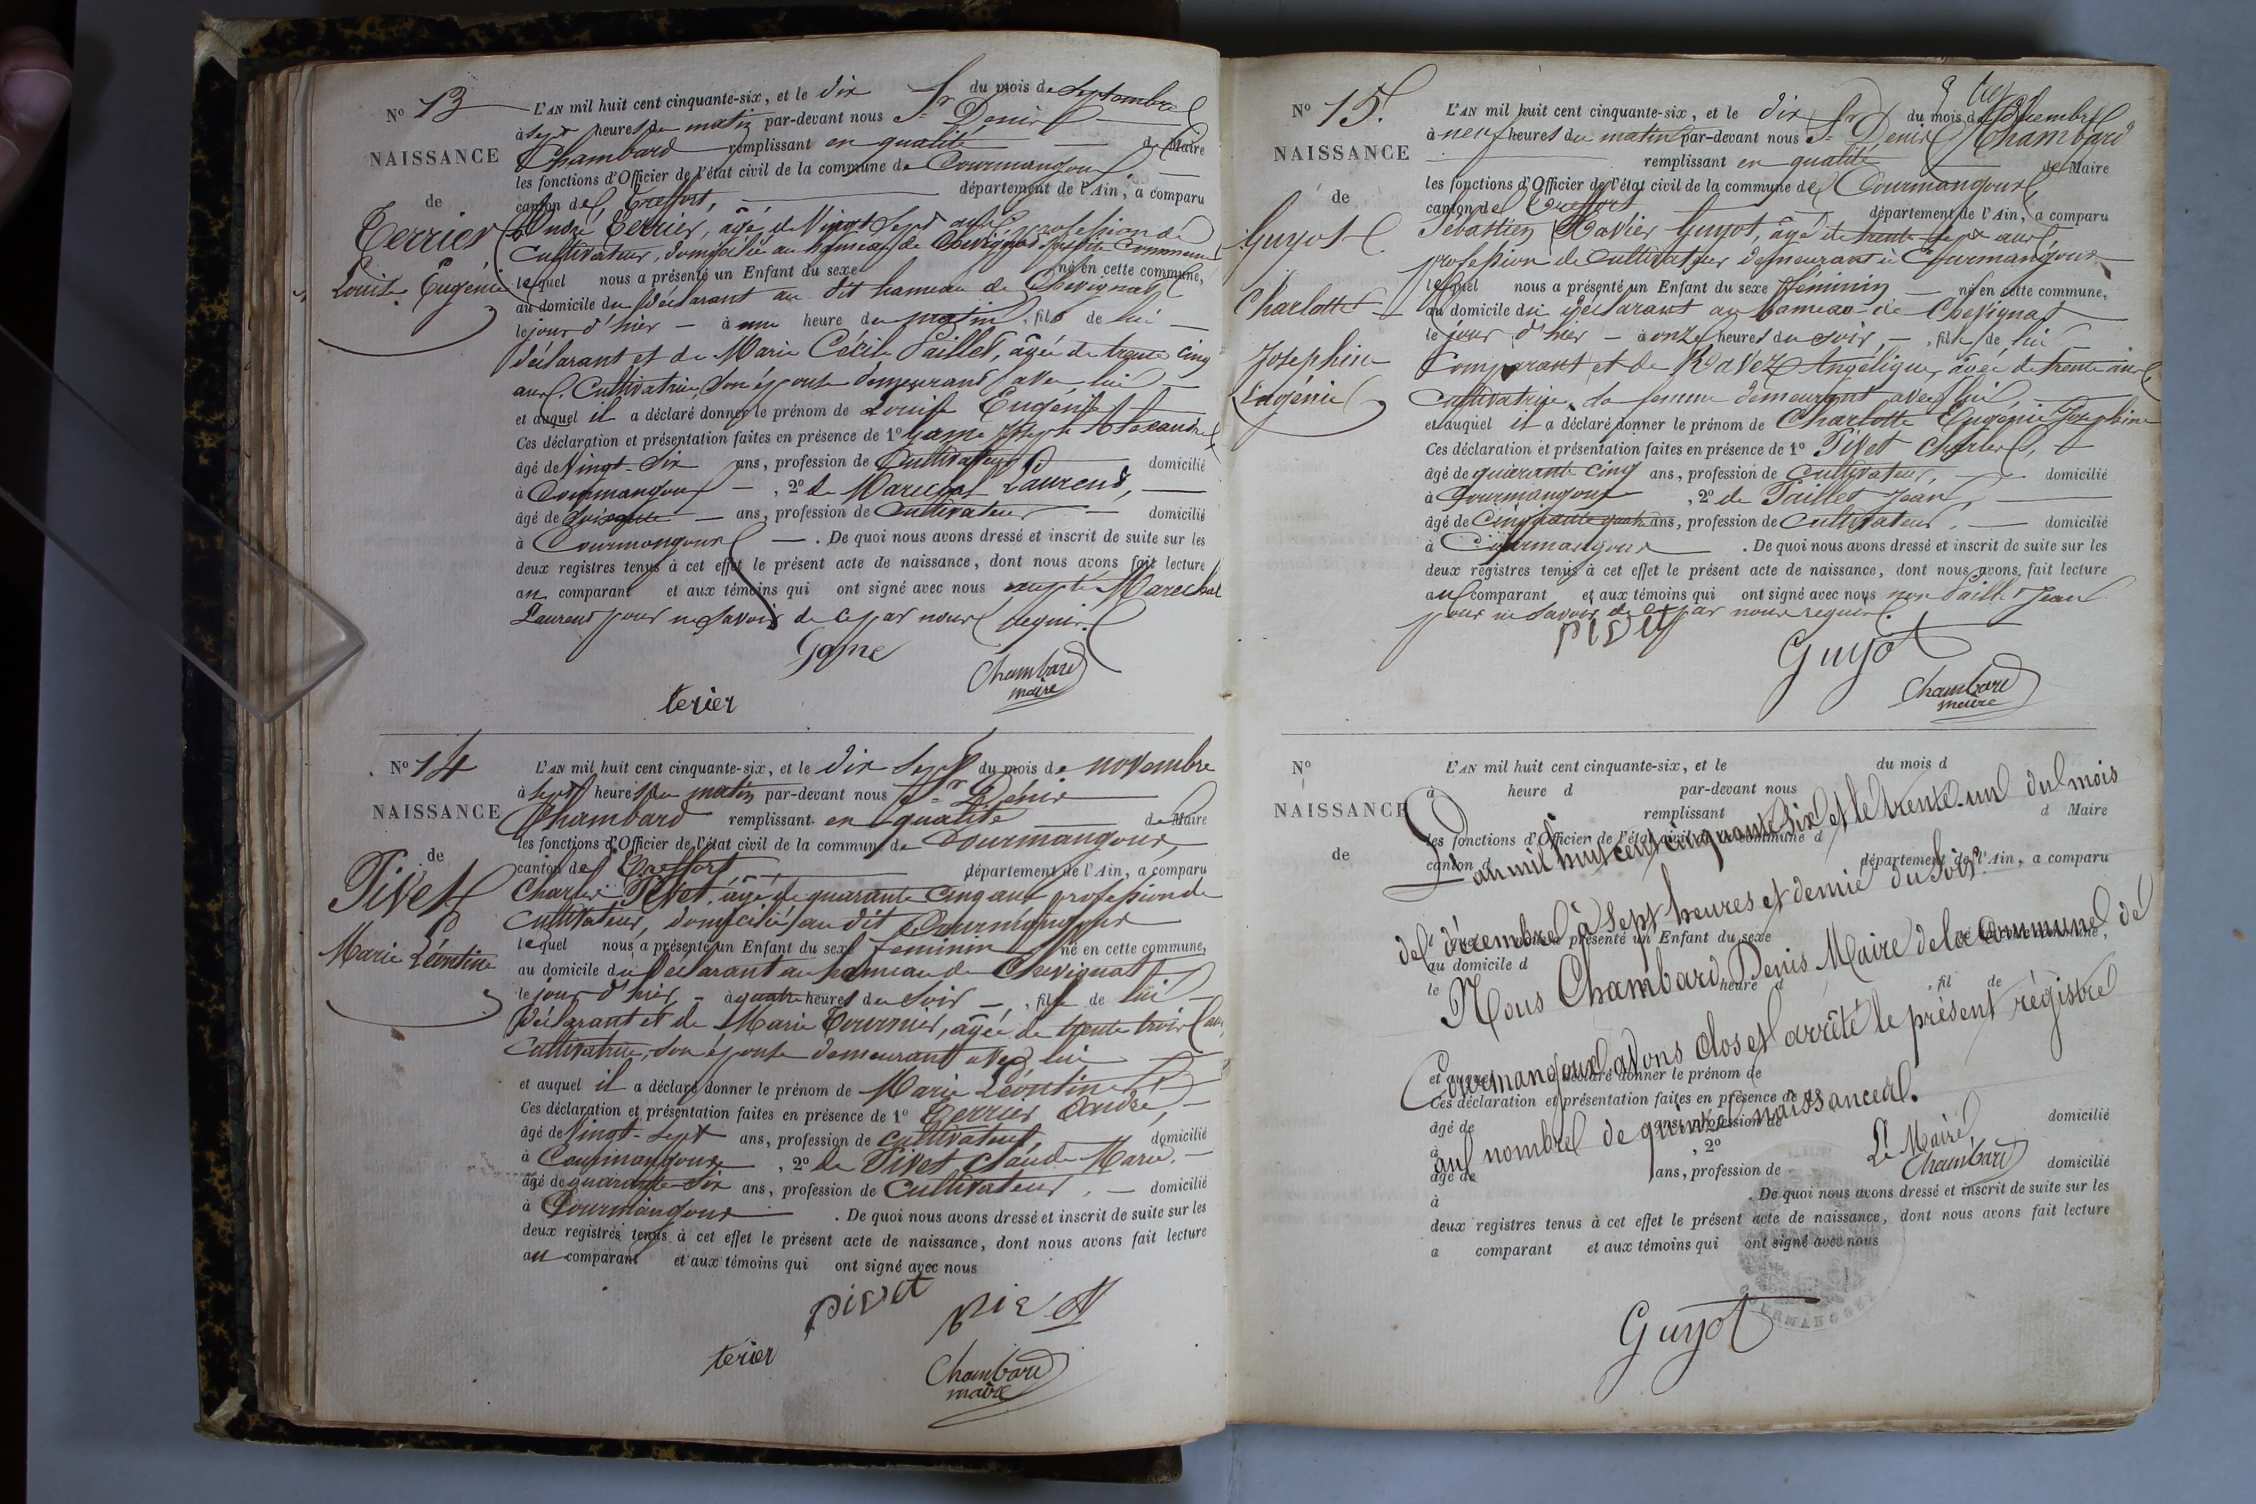 N° 13
NAISSANCE
de
Terrier
Louise Eugénie
L'AN mil huit cent cinquante-six, et le dix du mois de septembre
à sept heures du matin par-devant nous Sr Denis
Chambard remplissant en qualité de Maire
les fonctions d'Officier de l'état civil de la commune de Courmangoux
canton de Treffort, département de l'Ain, a comparu
André Terrier, âgé de Vingt sept ans profession de
Cultivateur, domicilié au hameau de Chevignat susdite Commune
lequel nous a présenté un Enfant du sexe né en cette commune,
au domicile du déclarant au dit hameau de Chevignat
le jour d'hier à une heure du matin, fils de lui
déclarant et de Marie Cécile Paillet, âgée de trente cinq
ans, Cultivatrice, Son épouse demeurant avec lui
et auquel il a déclaré donner le prénom de Louise Eugénie
Ces déclaration et présentation faites en présence de 1° Game Joseph Alexandre
âgé de Vingt-six ans, profession de Cultivateur domicilié
à Courmangoux, 2° de Marechal Laurent,
âgé de ans, profession de Cultivateur domicilié
à Courmangoux. De quoi nous avons dressé et inscrit de suite sur les
deux registres tenus à cet effet le présent acte de naissance, dont nous avons fait lecture
au comparant et aux témoins qui ont signé avec nous excepté Marechal
Laurent pour ne Savoir de ce par nous requis.
Game
Chambard
maire
terier
N° 14
NAISSANCE
de
Pivet
Marie Léontine
L'AN mil huit cent cinquante-six, et le dix sept du mois de novembre
à sept heures du matin par-devant nous Sr Denis
Chambard remplissant en qualité de Maire
les fonctions d'Officier de l'état civil de la commune de Courmangoux,
canton de Treffort département de l'Ain, a comparu
Charles Pivet, âgé de quarante cinq ans profession de
Cultivateur, domicilié au dit Courmangoux
lequel nous a présenté un Enfant du sexe féminin né en cette commune,
au domicile du déclarant au hameau de Chevignat
le jour d'hier à quatre heures du soir, fille de lui
déclarant et de Marie Tournier, âgée de trente trois ans,
Cultivatrice, Son épouse demeurant avec lui
et auquel il a déclaré donner le prénom de Marie Léontine
Ces déclaration et présentation faites en présence de 1° Terrier André,
âgé de Vingt-sept ans, profession de cultivateur, domicilié
à Courmangoux, 2° de Pivet Claude Marie,
âgé de quarante-six ans, profession de Cultivateur, domicilié
à Courmangoux. De quoi nous avons dressé et inscrit de suite sur les
deux registres tenus à cet effet le présent acte de naissance, dont nous avons fait lecture
au comparant et aux témoins qui ont signé avec nous
pivet
terier
Chambard
maire
N° 15.
NAISSANCE
de
Guyot
Charlotte
Josephine
Eugénie
L'AN mil huit cent cinquante-six, et le dix du mois de décembre
à neuf heures du matin par-devant nous Sr Denis Chambard
remplissant en qualité de Maire
les fonctions d'Officier de l'état civil de la commune de Courmangoux
canton de Treffort département de l'Ain, a comparu
Sébastien Xavier Guyot, âgé de trente sept ans
profession de Cultivateur demeurant à Courmangoux
lequel nous a présenté un Enfant du sexe féminin né en cette commune,
au domicile du déclarant au hameau de Chevignat
le jour d'hier à onze heures du soir, fille de lui
Comparant et de Ravez Angélique, âgée de trente ans,
Cultivatrice, sa femme demeurant avec lui
et auquel il a déclaré donner le prénom de Charlotte Eugénie Josephine
Ces déclaration et présentation faites en présence de 1° Pivet Charles,
âgé de quarante cinq ans, profession de Cultivateur, domicilié
à Courmangoux, 2° de Paillet Jean,
âgé de cinquante quatre ans, profession de Cultivateur, domicilié
à Courmangoux. De quoi nous avons dressé et inscrit de suite sur les
deux registres tenus à cet effet le présent acte de naissance, dont nous avons fait lecture
au comparant et aux témoins qui ont signé avec nous non Paillet Jean
pour ne Savoir de ce par nous requis.
pivet
Guyot
Chambard
maire
N°
NAISSANCE
de
L'AN mil huit cent cinquante-six, et le du mois d
à heure d par-devant nous
remplissant d Maire
les fonctions d'Officier de l'état civil de la commune d
canton d département de l'Ain, a comparu
L'an mil huit cent cinquante six et le trente-un du mois
de décembre à sept heures et demie du soir.
présenté un Enfant du sexe
au domicile d
le heure d , fil de
Nous Chambard Denis Maire de la Commune de
Courmangoux, avons clos et arrêté le présent régistre
et auquel déclaré donner le prénom de
Ces déclaration et présentation faites en présence de 1°
au nombre de quinze naissances.
Le Maire
Chambard
âgé de ans, profession de domicilié
à , 2°
âgé de ans, profession de domicilié
à . De quoi nous avons dressé et inscrit de suite sur les
deux registres tenus à cet effet le présent acte de naissance, dont nous avons fait lecture
a comparant et aux témoins qui ont signé avec nous
Guyot